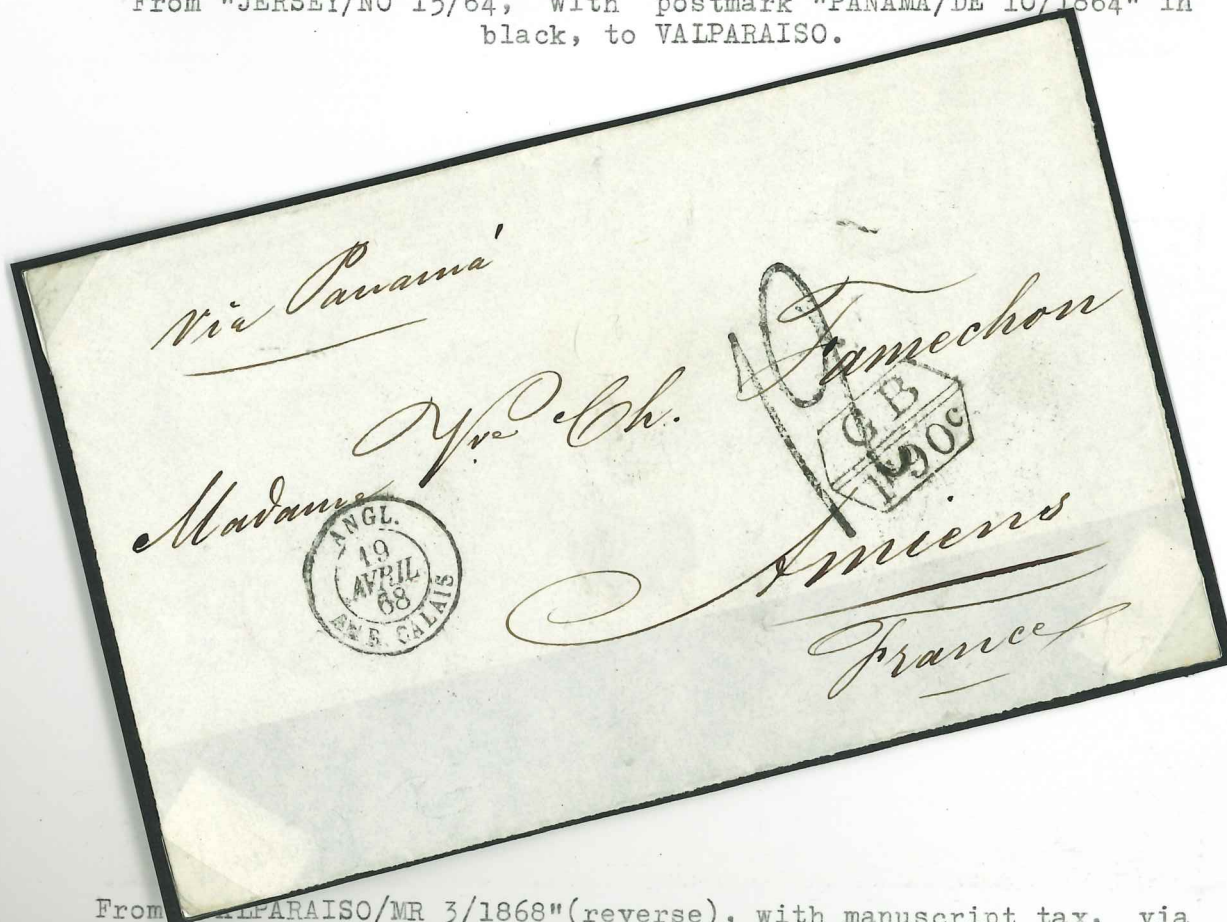 From "JERSEY/NO 15/64, with postmark "PANAMA/DE 10/1864" in
black, to VALPARAISO.
via Panamá
Madame Vve Ch. Famechon
GB
1F 90c
ANGL.
19
AVRIL
68
AMB. CALAIS
Amiens
France
From ALPARAISO/MR 3/1868"(reverse), with manuscript tax, via